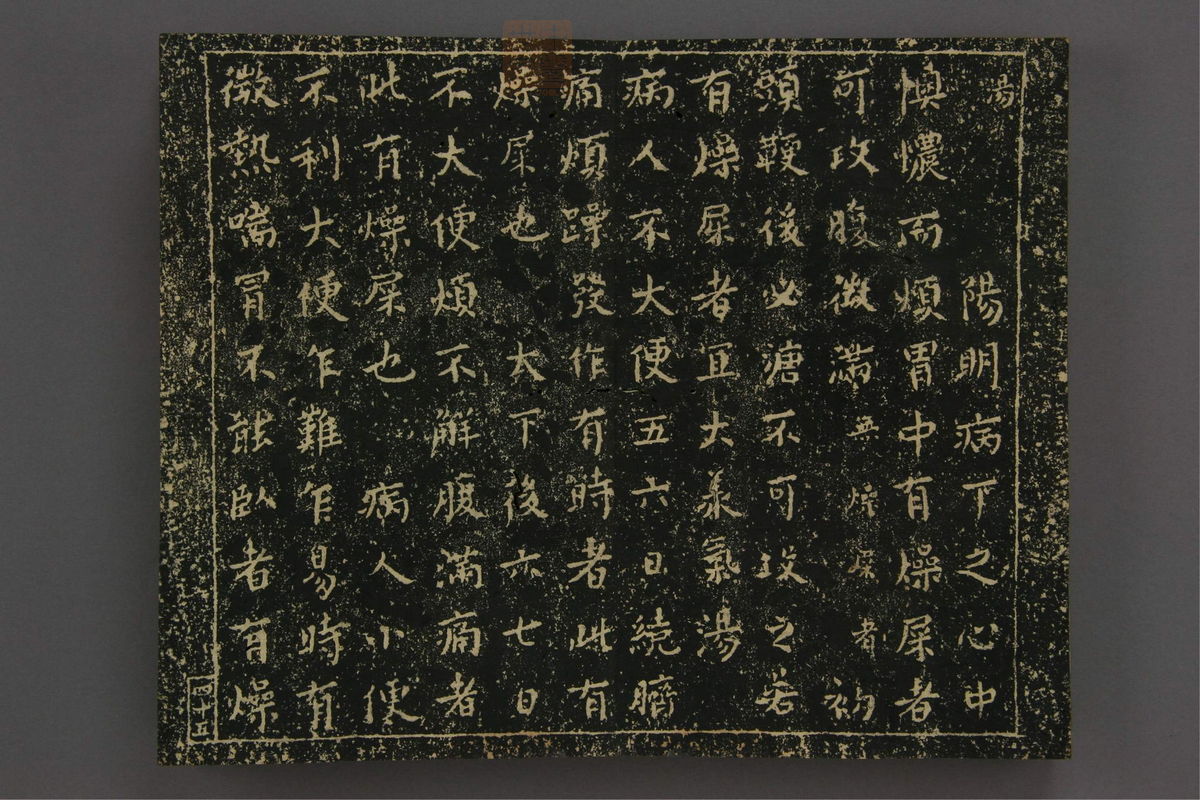 湯　陽明病下之心中
懊憹而煩胃中有燥屎者
可攻腹微滿無燥屎者初
頭鞕後必溏不可攻之若
有燥屎者宜大承氣湯
病人不大便五六日繞臍
痛煩躁發作有時者此有
燥屎也　大下後六七日
不大便煩不解腹滿痛者
此有燥屎也　病人小便
不利大便乍難乍易時有
微熱喘冒不能臥者有燥
四十五